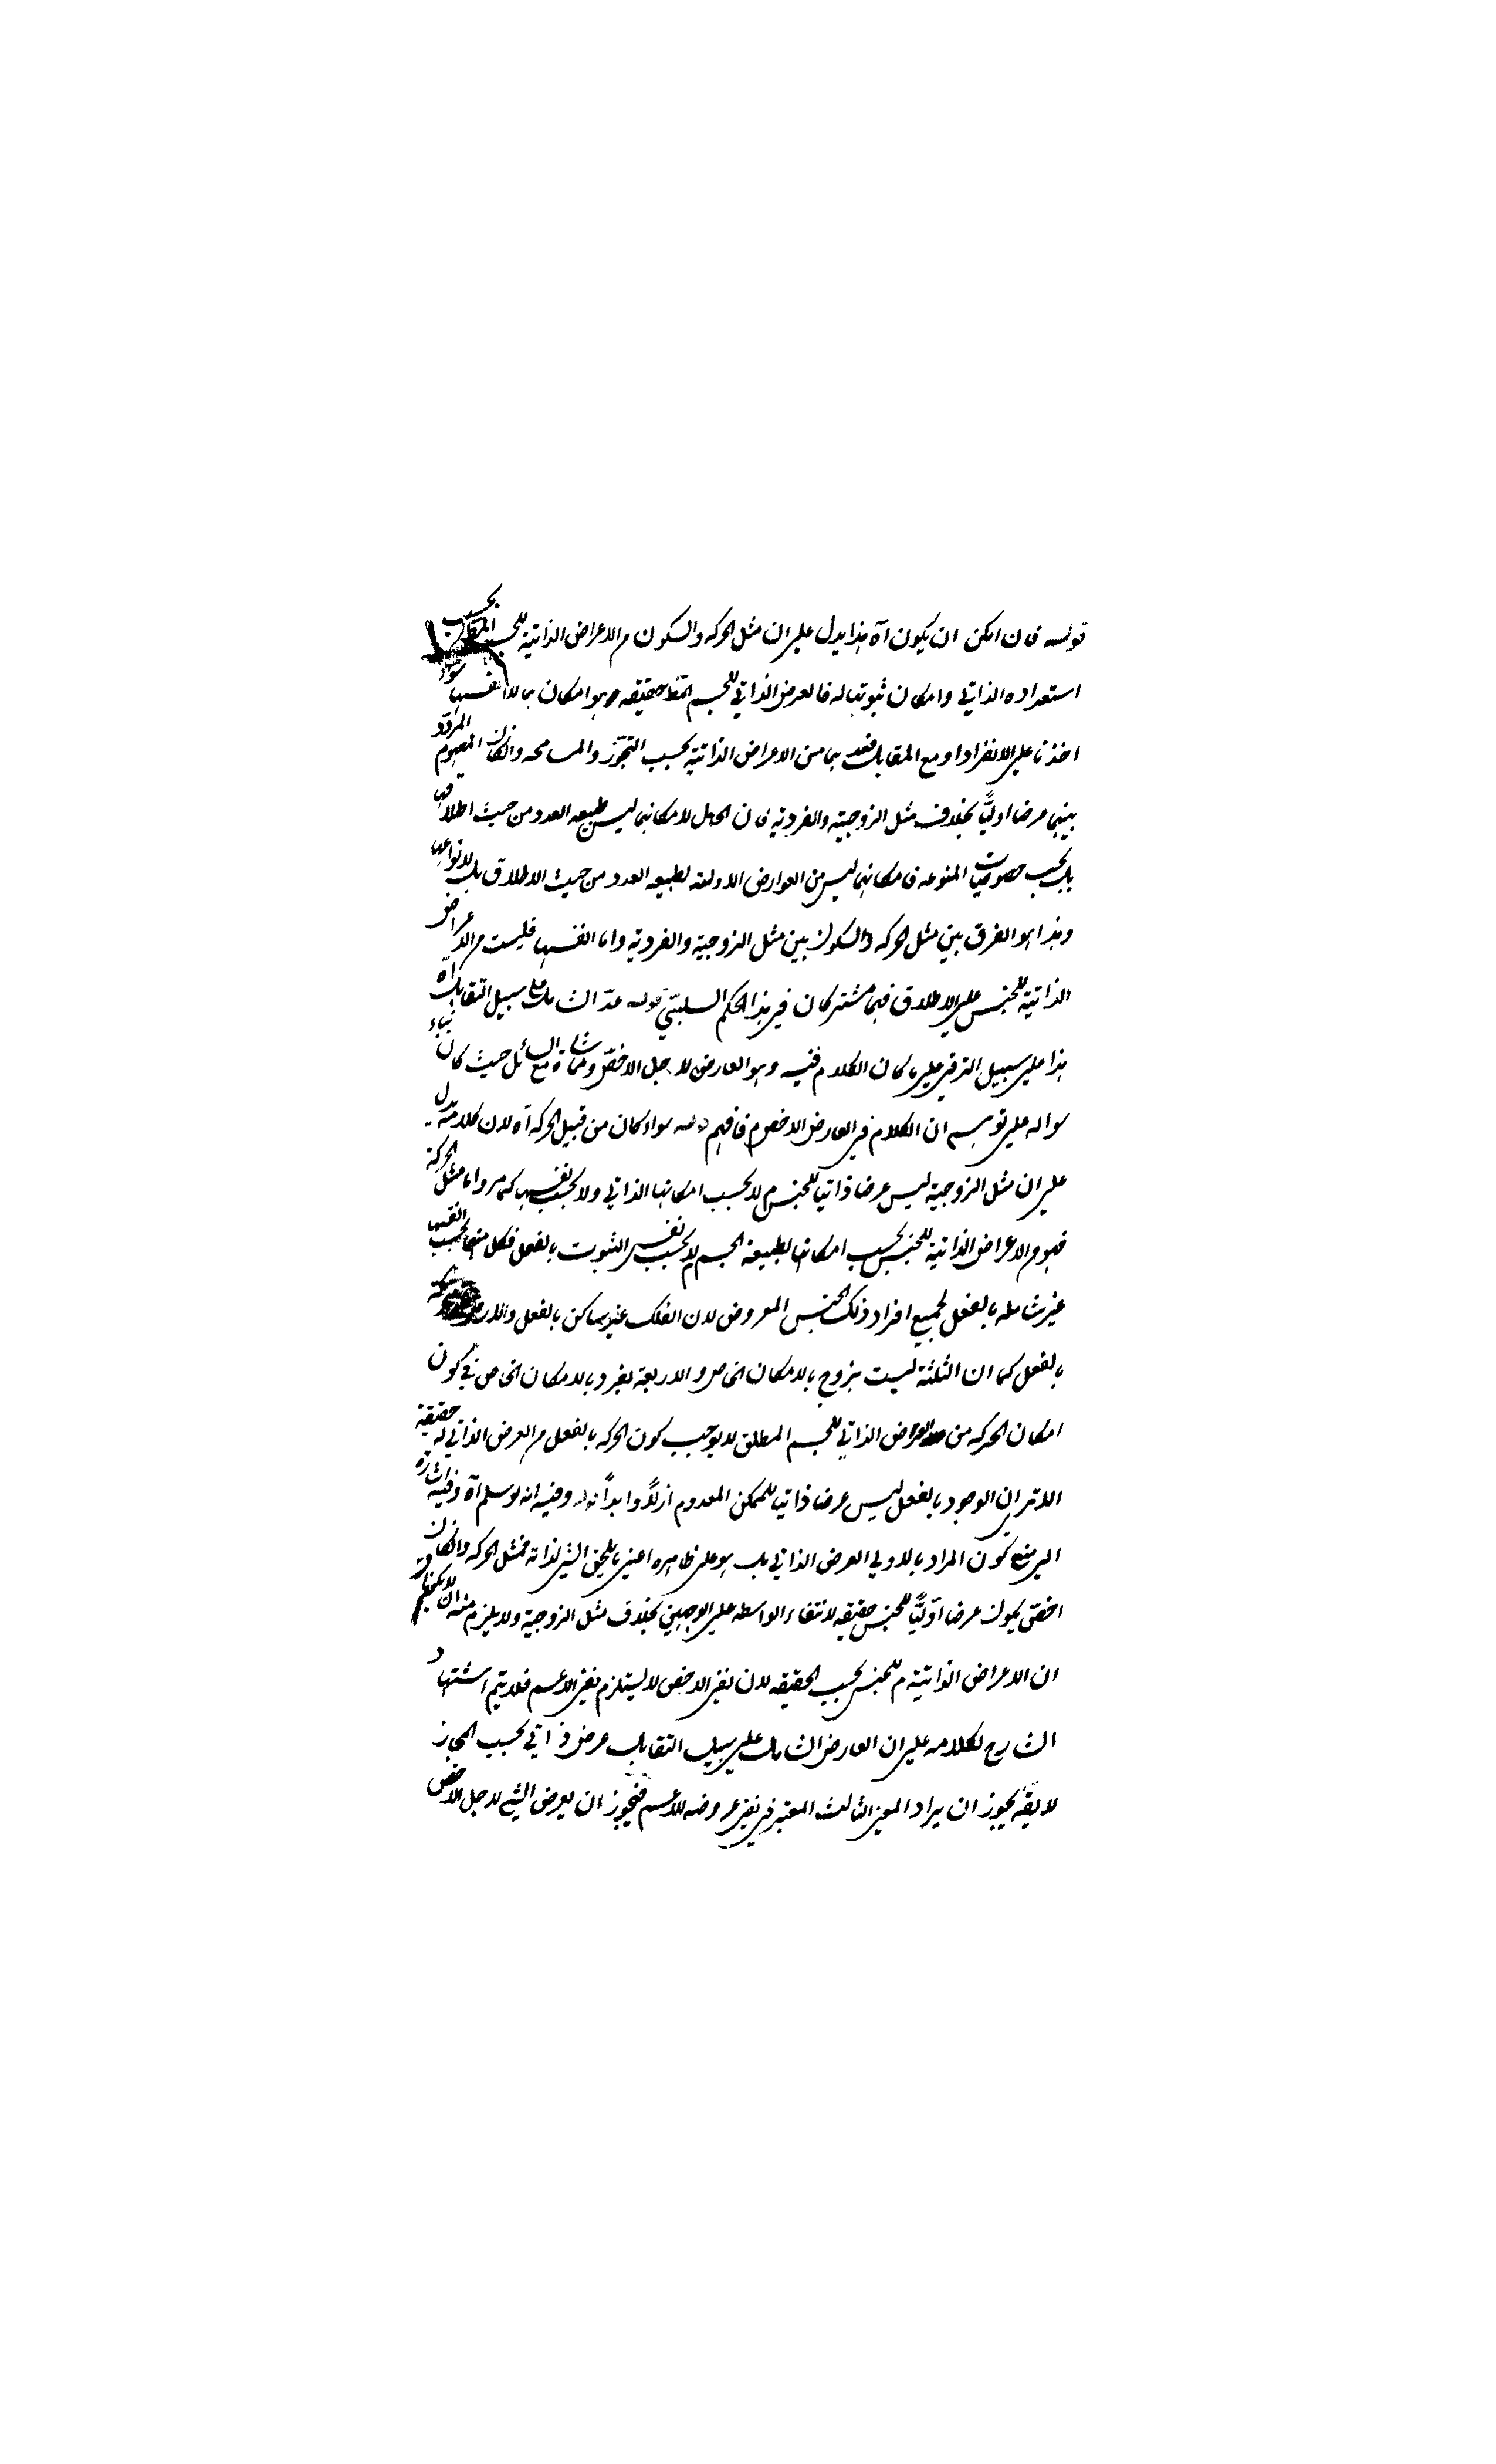 قوله فان امكن ان يكون آه هذا يدل على ان مثل الحركه والسكون من الاعراض الذاتية للجسم بحسب
استعداده الذاتي وامكان ثبوتها له فالعرض الذاتي للجسم حقيقه هو امكانهما لا انفسهما سواء
اخذتا على الانفراد او مع المقابل فعدهما من الاعراض الذاتية بحسب التجوّز والمسامحه وان كان المفهوم المردّد
بينهما عرضا اوليًّا بخلاف مثل الزوجية والفردية فان الحامل لامكانهما ليس طبيعه العدد من حيث اطلاقها
بل بحسب خصوصيات المنوعه فامكانهما ليس من العوارض الاوليه لطبيعه العدد من حيث الاطلاق بل لانواعها
وهذا هو الفرق بين مثل الحركه والسكون وبين مثل الزوجية والفردية واما انفسهما فليست من الاعراض
الذاتية للجنس على الاطلاق فهما مشتركان في هذا الحكم السلبيّ قوله عدّ الشامل على سبيل التقابل آه
هذا على سبيل الترقي على ما كان الكلام فيه وهو العارض لاجل الاخصّ ومماشاة مع السائل حيث كان بناء
سواله على توهم ان الكلام في العارض الاخص فافهم قوله سواء كان من قبيل الحركه آه لان كلامه يدل
على ان مثل الزوجية ليس عرضا ذاتيا للجنس لا بحسب امكانها الذاتي ولا بحسب نفسها كما مر واما مثل الحركة
فهو من الاعراض الذاتية للجنس بحسب امكانها لطبيعة الجسم لا بحسب نفس الثبوت بالفعل فكل منهما بحسب انفسها
غير شامله بالفعل لجميع افراد ذلك الجنس المعروض لان الفلك غير ساكن بالفعل والارض
بالفعل كما ان الثلثة ليست بزوج بالامكان الخاص والاربعة بفرد بالامكان الخاص في كون
امكان الحركه من العرض الذاتي للجسم المطلق لا يوجب كون الحركه بالفعل من العرض الذاتي له حقيقة
الا ترى ان الوجود بالفعل ليس عرضا ذاتيا للممكن المعدوم ازلًا وابدًا قوله وفيه انه لو سلم آه وفيه اشارة
الى منع كون المراد بالاولي العرض الذاتي بل هو على ظاهره اعني ما يلحق الشي لذاته فمثل الحركه وان كان
اخصّ يكون عرضا اوّليًّا للجنس حقيقه لانتفاء الواسطه على الوجهين بخلاف مثل الزوجية ولا يلزم منه ان لا يكونا
ان الاعراض الذاتية للجنس بحسب الحقيقه لان نفي الاخص لا يستلزم نفي الاعم فلا يتم استشهاد
الشارح لكلامه على ان العارض الشامل على سبيل التقابل عرض ذاتي بحسب المجاز
لا يقه يجوز ان يراد المعنى الثالث المعتبر في نفي عروضه للاعم فيجوز ان يعرض الشي لاجل الاخص